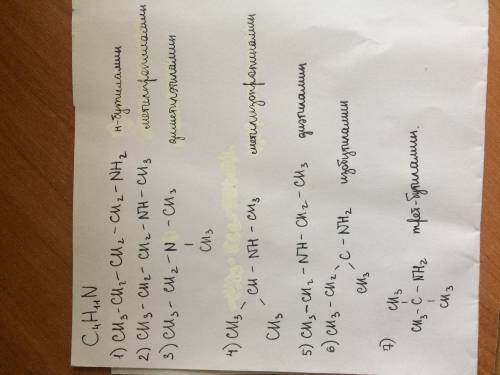 C₄H₁₁N
1) CH₃-CH₂-CH₂-CH₂-NH₂ н-бутиламин
2) CH₃-CH₂-CH₂-NH-CH₃ метилпропиламин
3) CH₃-CH₂-N-CH₃ диметилэтиламин
CH₃
4) CH₃
CH-NH-CH₃ метилизопропиламин
CH₃
5) CH₃-CH₂-NH-CH₂-CH₃ диэтиламин
6) CH₃-CH₂
C-NH₂ изобутиламин
CH₃
7) CH₃
CH₃-C-NH₂ трет-бутиламин.
CH₃